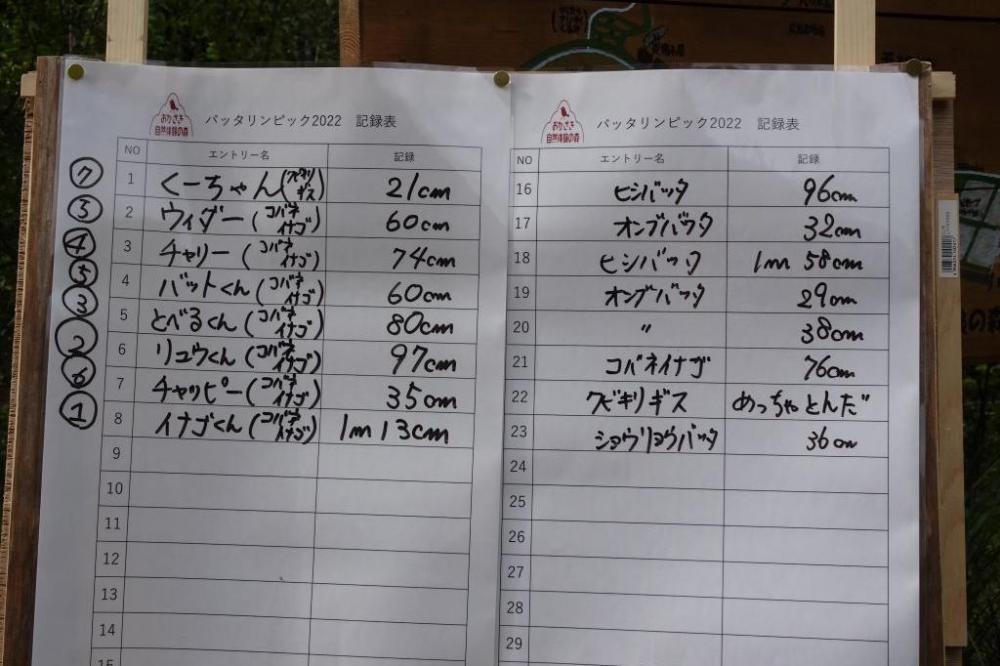 おかざき
自然体験の森
バッタリンピック2022 記録表
NO エントリー名 記録
⑦ 1 くーちゃん(クビキリギス) 21cm
⑤ 2 ウィダー(コバネイナゴ) 60cm
④ 3 チャリー(コバネイナゴ) 74cm
⑤ 4 バットくん(コバネイナゴ) 60cm
③ 5 とべるくん(コバネイナゴ) 80cm
② 6 リュウくん(コバネイナゴ) 97cm
⑥ 7 チャッピー(コバネイナゴ) 35cm
① 8 イナゴくん(コバネイナゴ) 1m13cm
9
10
11
12
13
14
15
おかざき
自然体験の森
バッタリンピック2022 記録表
NO エントリー名 記録
16 ヒシバッタ 96cm
17 オンブバッタ 32cm
18 ヒシバッタ 1m 58cm
19 オンブバッタ 29cm
20 〃 38cm
21 コバネイナゴ 76cm
22 クビキリギス めっちゃとんだ
23 ショウリョウバッタ 36cm
24
25
26
27
28
29